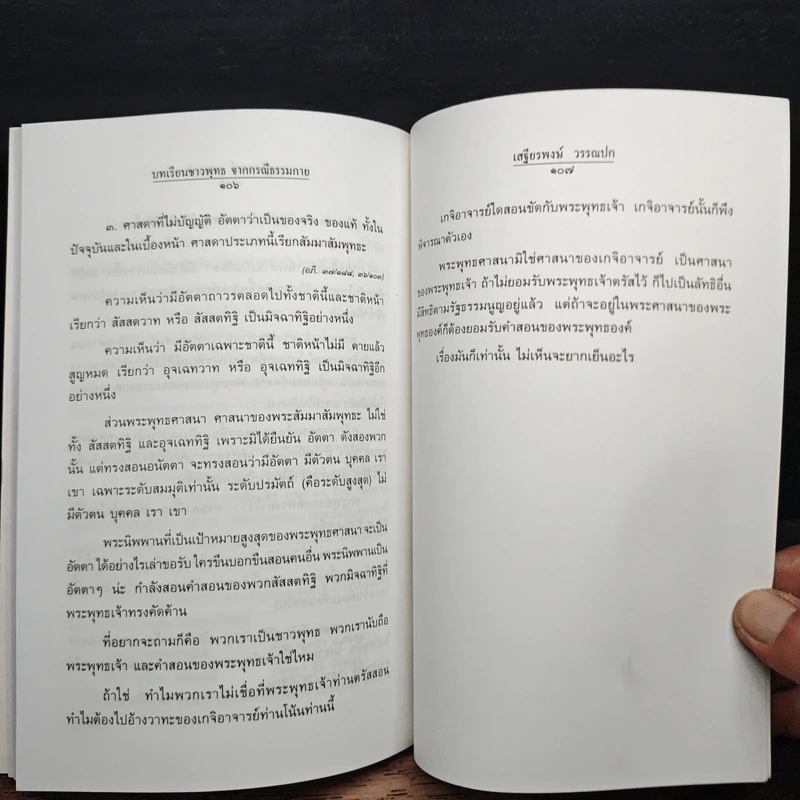 บทเรียนชาวพุทธ จากกรณีธรรมกาย
๑๐๖
๓. ศาสดาที่ไม่บัญญัติ อัตตาว่าเป็นของจริง ของแท้ ทั้งใน
ปัจจุบันและในเบื้องหน้า ศาสดาประเภทนี้เรียกสัมมาสัมพุทธะ
(อภิ. ๓๗/๑๘๘, ๓๖/๑๐๓)
ความเห็นว่ามีอัตตาถาวรตลอดไปทั้งชาตินี้และชาติหน้า
เรียกว่า สัสสตวาท หรือ สัสสตทิฐิ เป็นมิจฉาทิฐิอย่างหนึ่ง
ความเห็นว่า มีอัตตาเฉพาะชาตินี้ ชาติหน้าไม่มี ตายแล้ว
สูญหมด เรียกว่า อุจเฉทวาท หรือ อุจเฉททิฐิ เป็นมิจฉาทิฐิอีก
อย่างหนึ่ง
ส่วนพระพุทธศาสนา ศาสนาของพระสัมมาสัมพุทธะ ไม่ใช่
ทั้ง สัสสตทิฐิ และอุจเฉททิฐิ เพราะมิได้ยืนยัน อัตตา ดังสองพวก
นั้น แต่ทรงสอนอนัตตา จะทรงสอนว่ามีอัตตา มีตัวตน บุคคล เรา
เขา เฉพาะระดับสมมุติเท่านั้น ระดับปรมัตถ์ (คือระดับสูงสุด) ไม่
มีตัวตน บุคคล เรา เขา
พระนิพพานที่เป็นเป้าหมายสูงสุดของพระพุทธศาสนา จะเป็น
อัตตา ได้อย่างไรเล่าขอรับ ใครขืนบอกขืนสอนคนอื่น พระนิพพานเป็น
อัตตาๆ น่ะ กำลังสอนคำสอนของพวกสัสสตทิฐิ พวกมิจฉาทิฐิที่
พระพุทธเจ้าทรงคัดค้าน
ที่อยากจะถามก็คือ พวกเราเป็นชาวพุทธ พวกเรานับถือ
พระพุทธเจ้า และคำสอนของพระพุทธเจ้าใช่ไหม
ถ้าใช่ ทำไมพวกเราไม่เชื่อที่พระพุทธเจ้าท่านตรัสสอน
ทำไมต้องไปอ้างวาทะของเกจิอาจารย์ท่านโน้นท่านนี้
เสฐียรพงษ์ วรรณปก
๑๐๗
เกจิอาจารย์ใดสอนขัดกับพระพุทธเจ้า เกจิอาจารย์นั้นก็พึง
พิจารณาตัวเอง
พระพุทธศาสนามิใช่ศาสนาของเกจิอาจารย์ เป็นศาสนา
ของพระพุทธเจ้า ถ้าไม่ยอมรับพระพุทธเจ้าตรัสไว้ ก็ไปเป็นลัทธิอื่น
มีสิทธิตามรัฐธรรมนูญอยู่แล้ว แต่ถ้าจะอยู่ในพระศาสนาของพระ
พุทธองค์ก็ต้องยอมรับคำสอนของพระพุทธองค์
เรื่องมันก็เท่านั้น ไม่เห็นจะยากเย็นอะไร